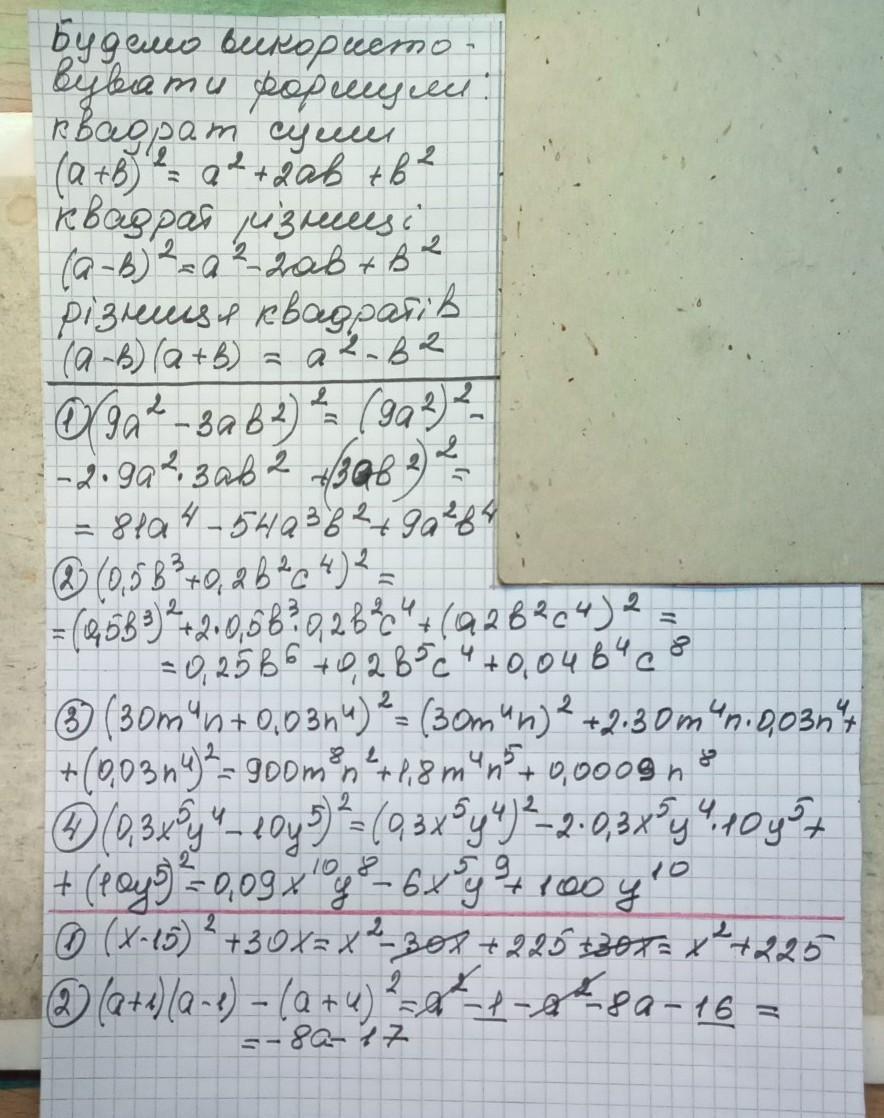 Будемо використо-
вувати формули:
квадрат суми
(a+b)² = a² + 2ab + b²
квадрат різниці
(a-b)² = a² - 2ab + b²
різниця квадратів
(a-b)(a+b) = a² - b²
① (9a² - 3ab²)² = (9a²)² -
- 2·9a²·3ab² + (3ab²)² =
= 81a⁴ - 54a³b² + 9a²b⁴
② (0,5b³ + 0,2b²c⁴)² =
= (0,5b³)² + 2·0,5b³·0,2b²c⁴ + (0,2b²c⁴)² =
= 0,25b⁶ + 0,2b⁵c⁴ + 0,04b⁴c⁸
③ (30m⁴n + 0,03n⁴)² = (30m⁴n)² + 2·30m⁴n·0,03n⁴ +
+ (0,03n⁴)² = 900m⁸n² + 1,8m⁴n⁵ + 0,0009n⁸
④ (0,3x⁵y⁴ - 10y⁵)² = (0,3x⁵y⁴)² - 2·0,3x⁵y⁴·10y⁵ +
+ (10y⁵)² = 0,09x¹⁰y⁸ - 6x⁵y⁹ + 100y¹⁰
① (x-15)² + 30x = x² - 30x + 225 + 30x = x² + 225
② (a+1)(a-1) - (a+4)² = a² - 1 - a² - 8a - 16 =
= -8a - 17